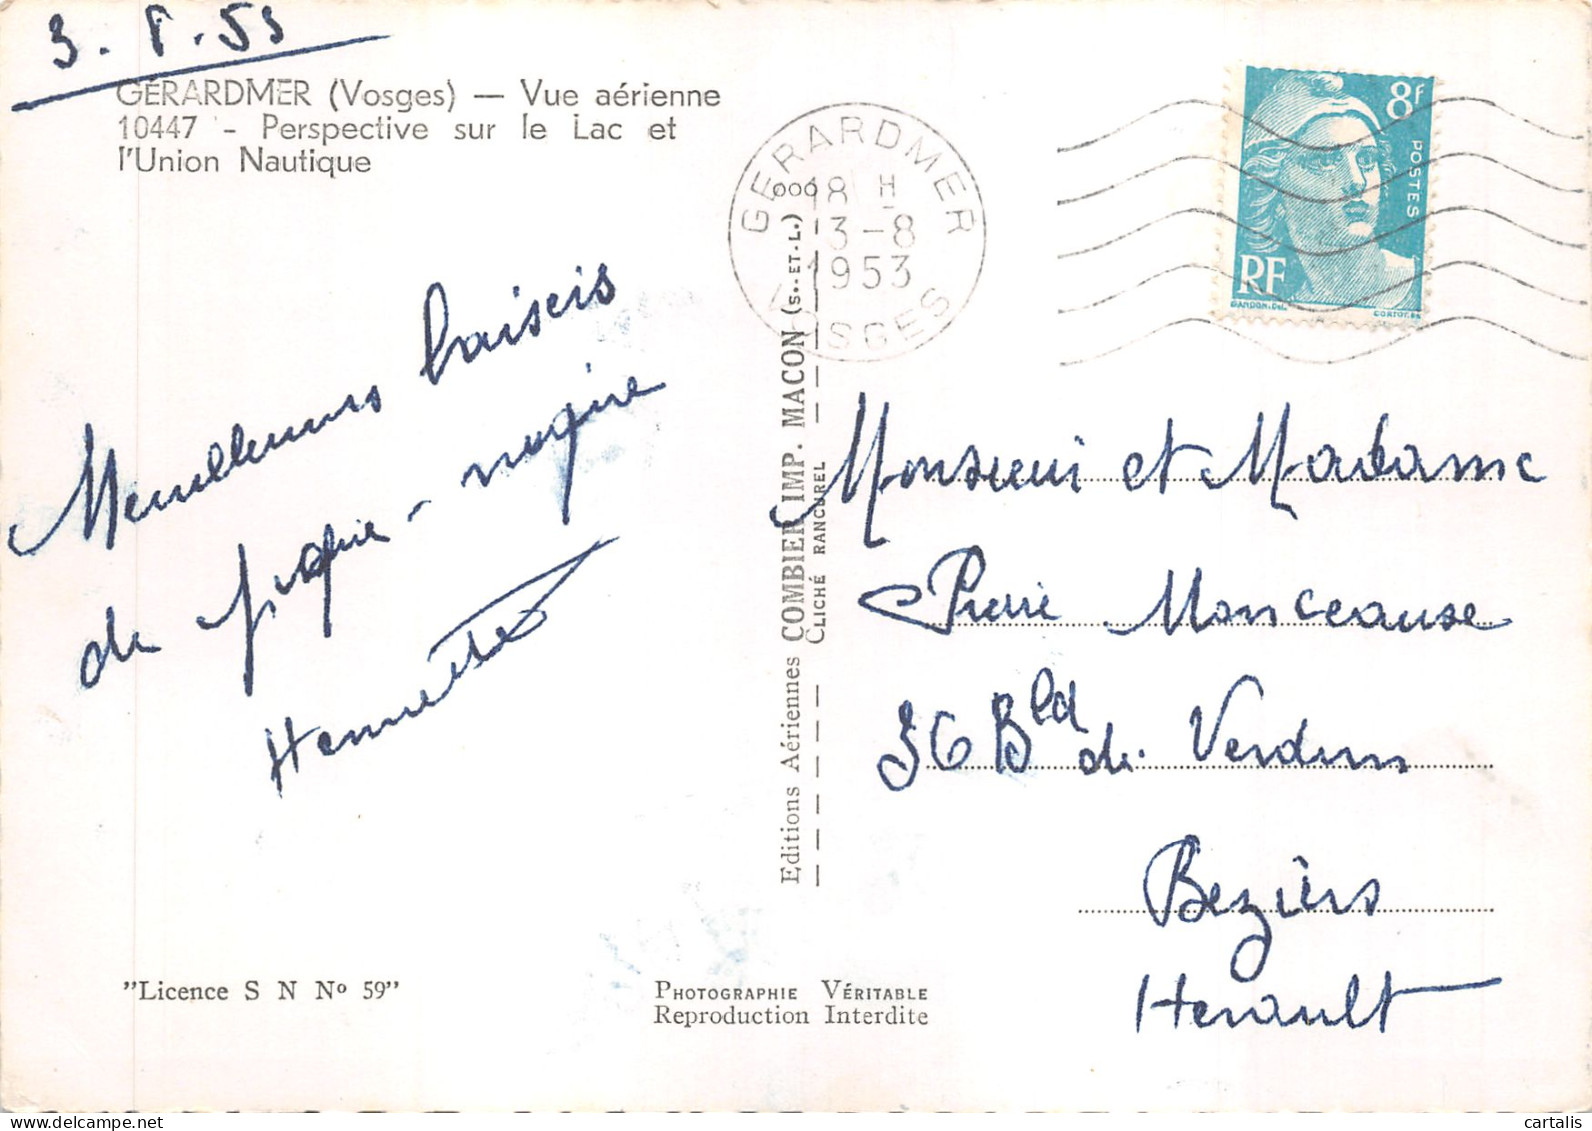 3. 8. 53
GÉRARDMER (Vosges) — Vue aérienne
10447 - Perspective sur le Lac et
l'Union Nautique
GERARDMER
18 H
3-8
1953
VOSGES
8F
POSTES
RF
GANDON.DEL.
CORTOT.SC
Meilleurs baisers
de
Henriette
Editions Aériennes COMBIER IMP. MACON (S.-ET-L.)
CLICHÉ RANCUREL
Monsieur et Madame
Pierre Monceause
36 Bld de Verdun
Beziers
Herault
"Licence S N Nº 59"
PHOTOGRAPHIE VÉRITABLE
Reproduction Interdite
cartalis